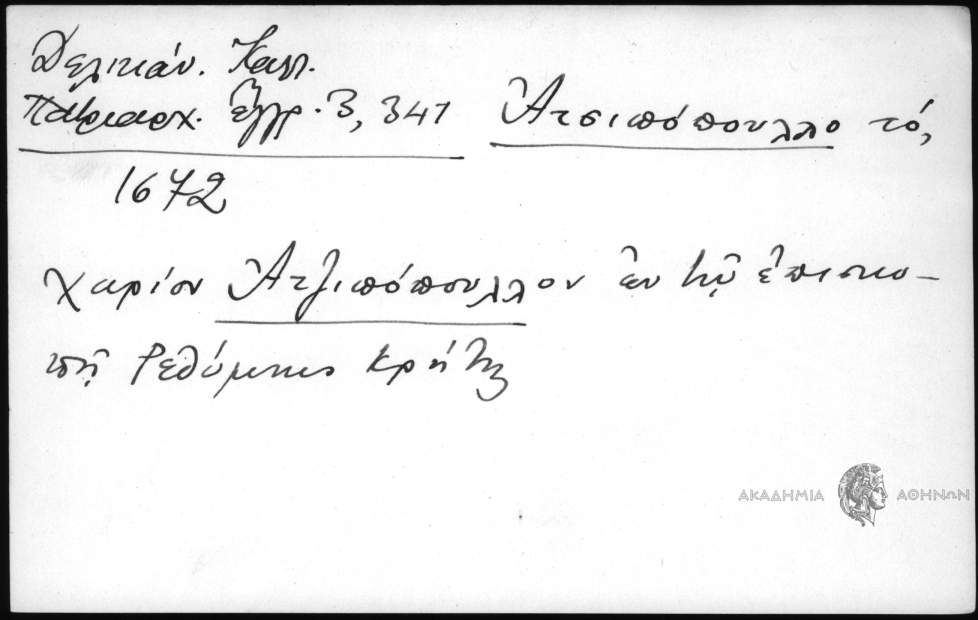 Δελικάν. Καλλ.
Πατριαρχ. ἔγγρ. 3, 341
Ἀτσιπόπουλλο τό,
1672
χωρίον Ἀτζιπόπουλλον ἐν τῇ ἐπισκο-
πῇ Ρεθύμνης Κρήτης
ΑΚΑΔΗΜΙΑ ΑΘΗΝΩΝ